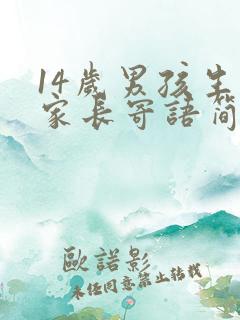 14歲男孩生
家長寄語簡
歐諾影
未任同意禁止转载